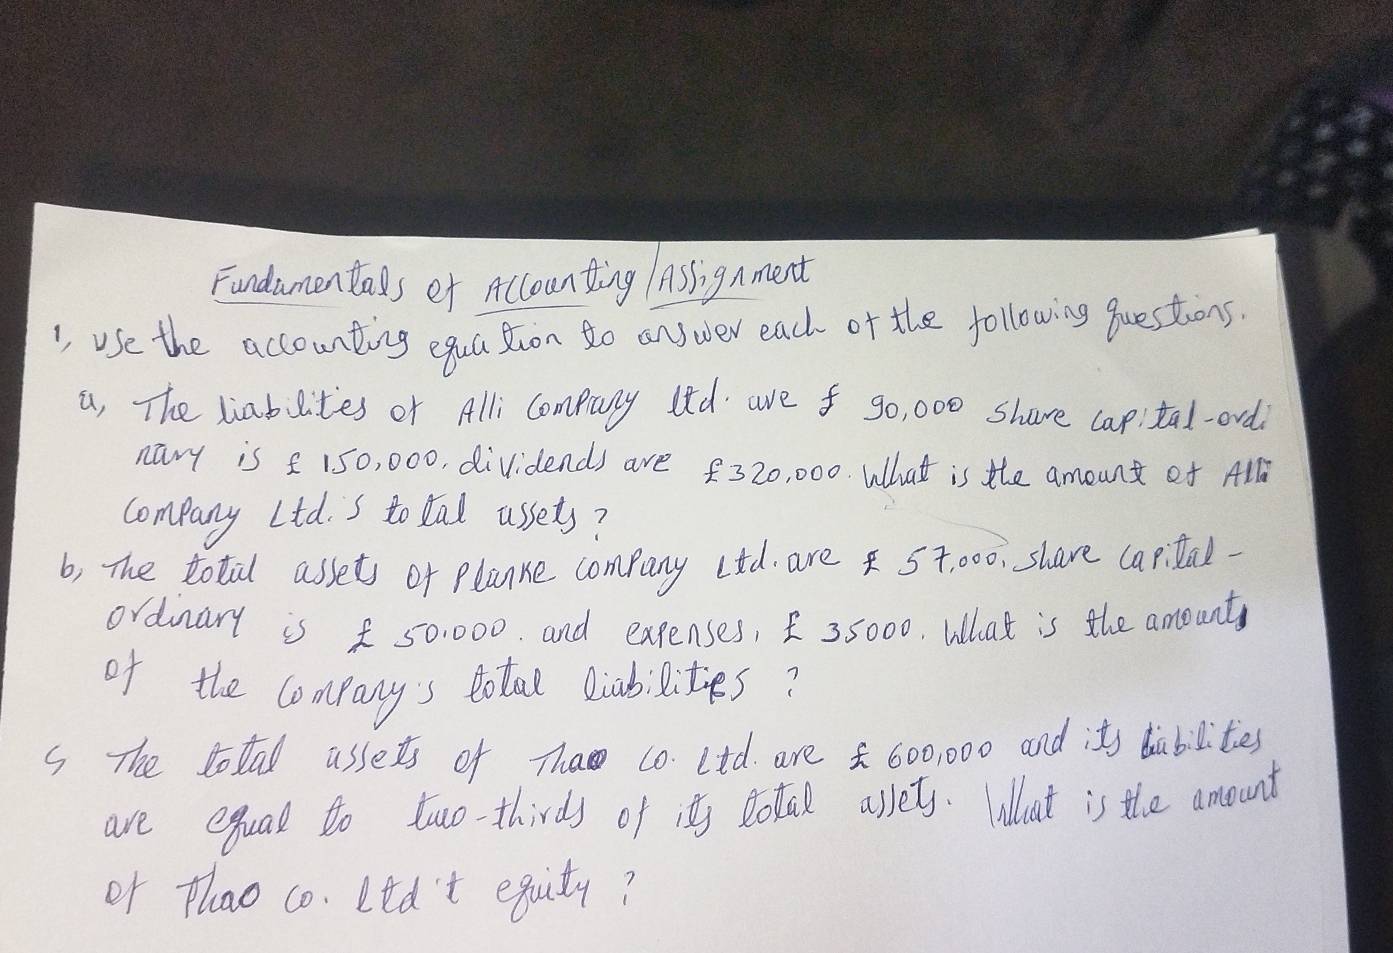 Fundamentals of Accounting/Assignment
1, Use the accounting equation to answer each of the following questions.
a, The liabilities of Alli Company Ltd. are £ 90,000 share capital-ordi
nary is £ 150,000. dividends are £320,000. What is the amount of Alli
Company Ltd.'s total assets?
b, The total assets of Planke company Ltd. are £ 57,000. share capital-
ordinary is £ 50.000. and expenses, £ 35000. What is the amount
of the company's total liabilities?
c, The total assets of Thao co. Ltd. are £ 600,000 and its liabilities
are equal to two-thirds of its total assets. What is the amount
of Thao co. Ltd't equity?